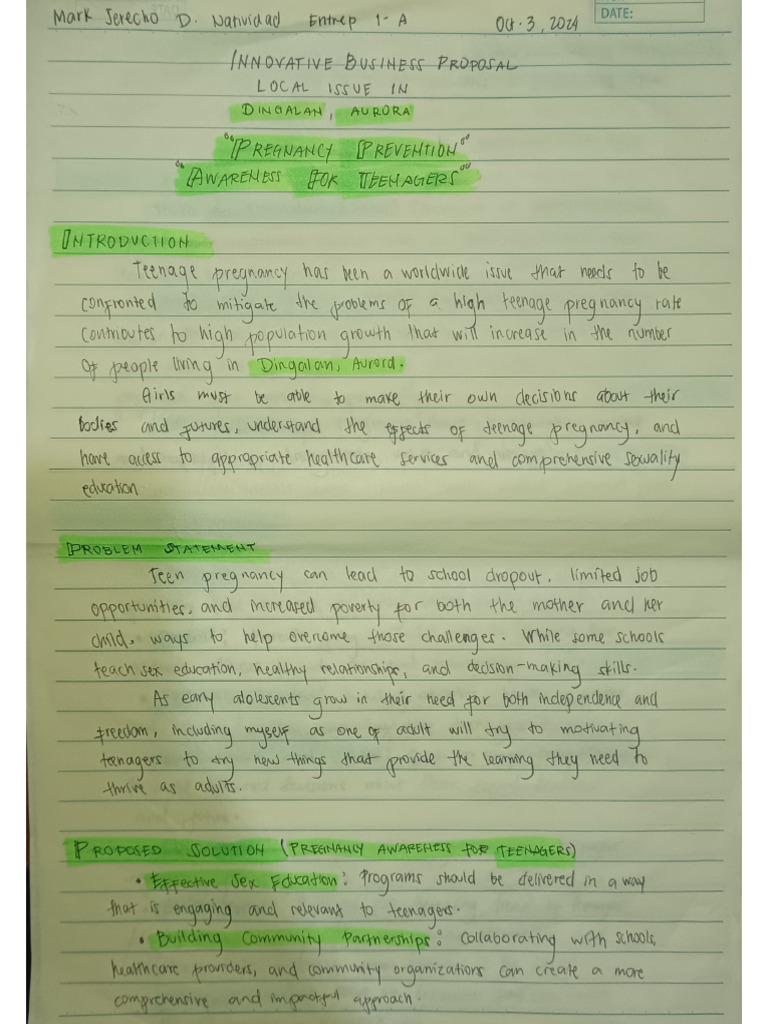 DATE:
Mark Jerecho D. Natividad Entrep 1-A Oct. 3, 2024
INNOVATIVE BUSINESS PROPOSAL
LOCAL ISSUE IN
DINGALAN, AURORA
"PREGNANCY PREVENTION"
"AWARENESS FOR TEENAGERS"
INTRODUCTION
Teenage pregnancy has been a worldwide issue that needs to be
confronted to mitigate the problems of a high teenage pregnancy rate
contributes to high population growth that will increase in the number
of people living in Dingalan, Aurora.
Girls must be able to make their own decisions about their
bodies and futures, understand the effects of teenage pregnancy, and
have access to appropriate healthcare services and comprehensive sexuality
education
PROBLEM STATEMENT
Teen pregnancy can lead to school dropout, limited job
opportunities, and increased poverty for both the mother and her
child, ways to help overcome those challenges. While some schools
teach sex education, healthy relationships, and decision-making skills.
As early adolescents grow in their need for both independence and
freedom, including myself as one of adult will try to motivating
teenagers to try new things that provide the learning they need to
thrive as adults.
PROPOSED SOLUTION (PREGNANCY AWARENESS FOR TEENAGERS)
• Effective Sex Education: Programs should be delivered in a way
that is engaging and relevant to teenagers.
• Building Community Partnerships: Collaborating with schools,
healthcare providers, and community organizations can create a more
comprehensive and impactful approach.